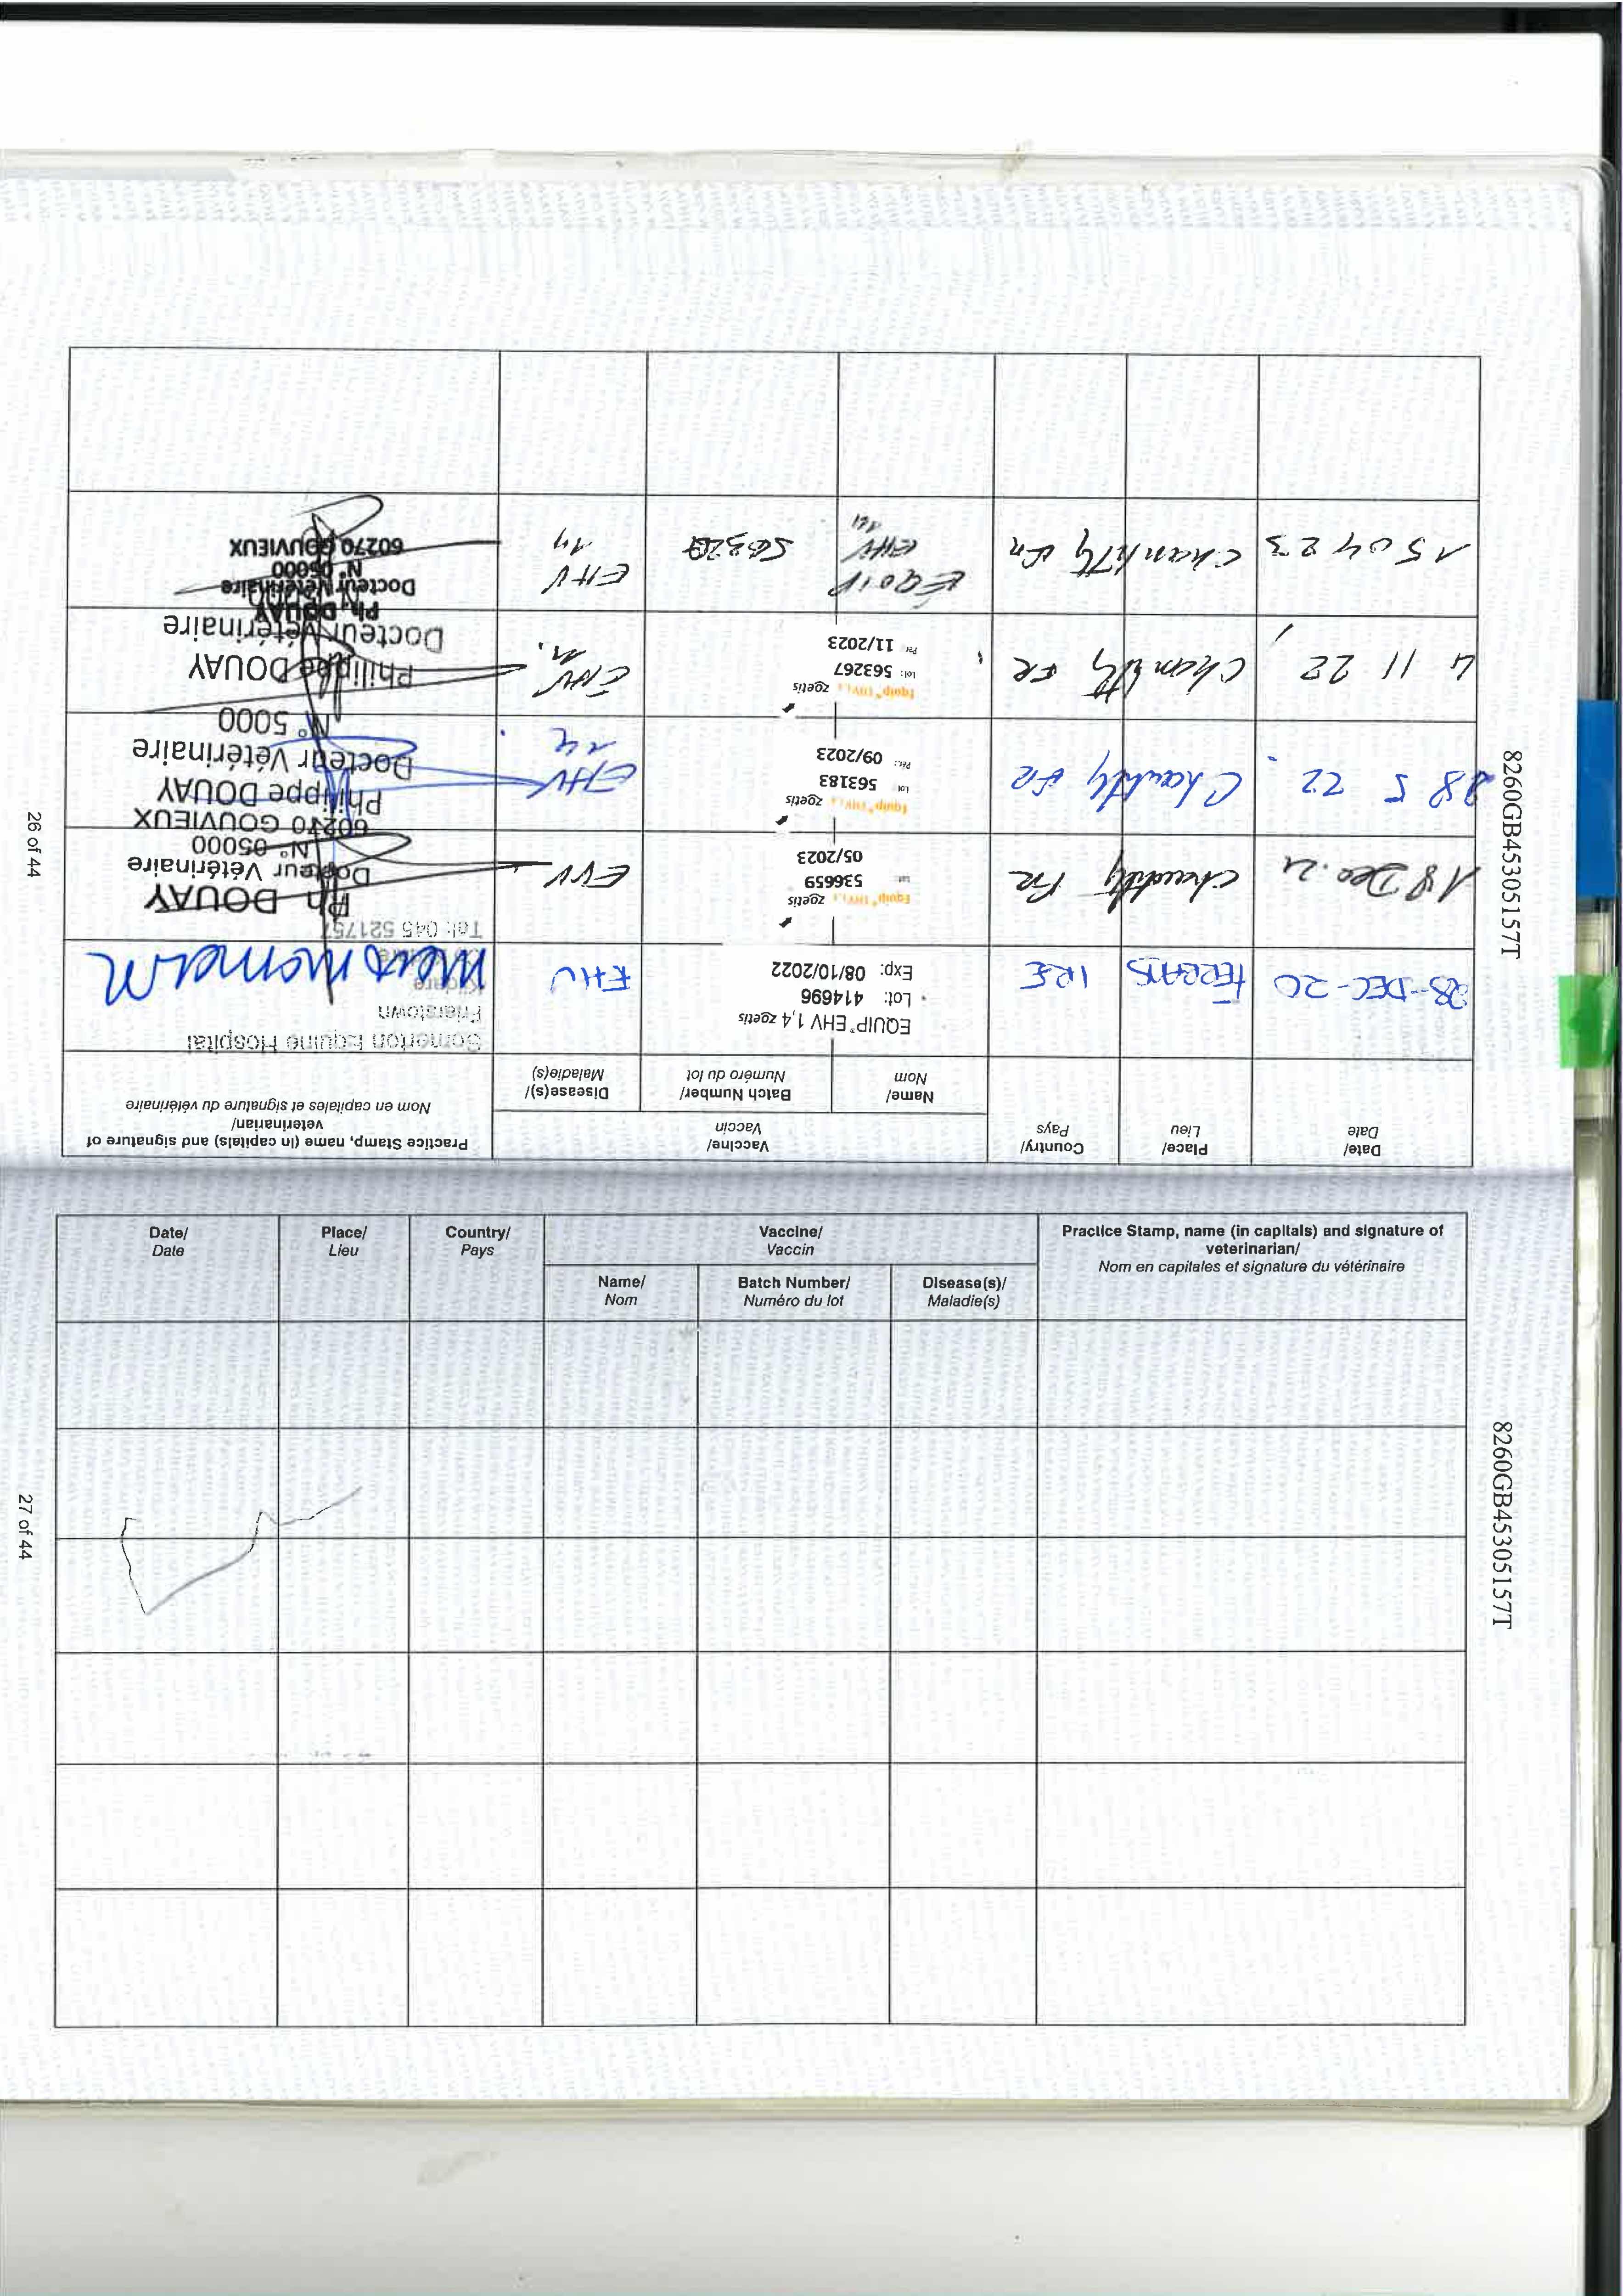 8260GB45305157T
Date/ Place/ Country/ Vaccine/ Practice Stamp, name (in capitals) and signature of
Date Lieu Pays Vaccin veterinarian/
Name/ Batch Number/ Disease(s)/ Nom en capitales et signature du vétérinaire
Nom Numéro du lot Maladie(s)
28-DEC-20 FERRANS IRE EQUIP® EHV 1,4 zoetis EHV Somerton Equine Hospital
Lot: 414696 Friarstown
Exp: 08/10/2022 Kildare
Tel: 045 521757
18 Dec. 21 Chantilly FR Equip® EHV 1,4 zoetis EHV Ph DOUAY
Lot: 536659 Docteur Vétérinaire
05/2023 N° 05000
60270 GOUVIEUX
28 5 22. Chantilly FR Equip® EHV 1,4 zoetis EHV Philippe DOUAY
Lot 563183 1 4 Docteur Vétérinaire
Per.: 09/2023 N° 5000
4 11 22 Chantilly FR Equip® EHV 1,4 zoetis EHV Philippe DOUAY
Lot: 563267 Docteur Vétérinaire
Per 11/2023
15 04 23 Chantilly FR EQUIP EHV EHV Ph. DOUAY
14 14 Docteur Vétérinaire
N° 05000
60270 GOUVIEUX
26 of 44
Date/ Place/ Country/ Vaccine/ Practice Stamp, name (in capitals) and signature of
Date Lieu Pays Vaccin veterinarian/
Name/ Batch Number/ Disease(s)/ Nom en capitales et signature du vétérinaire
Nom Numéro du lot Maladie(s)
8260GB45305157T
27 of 44